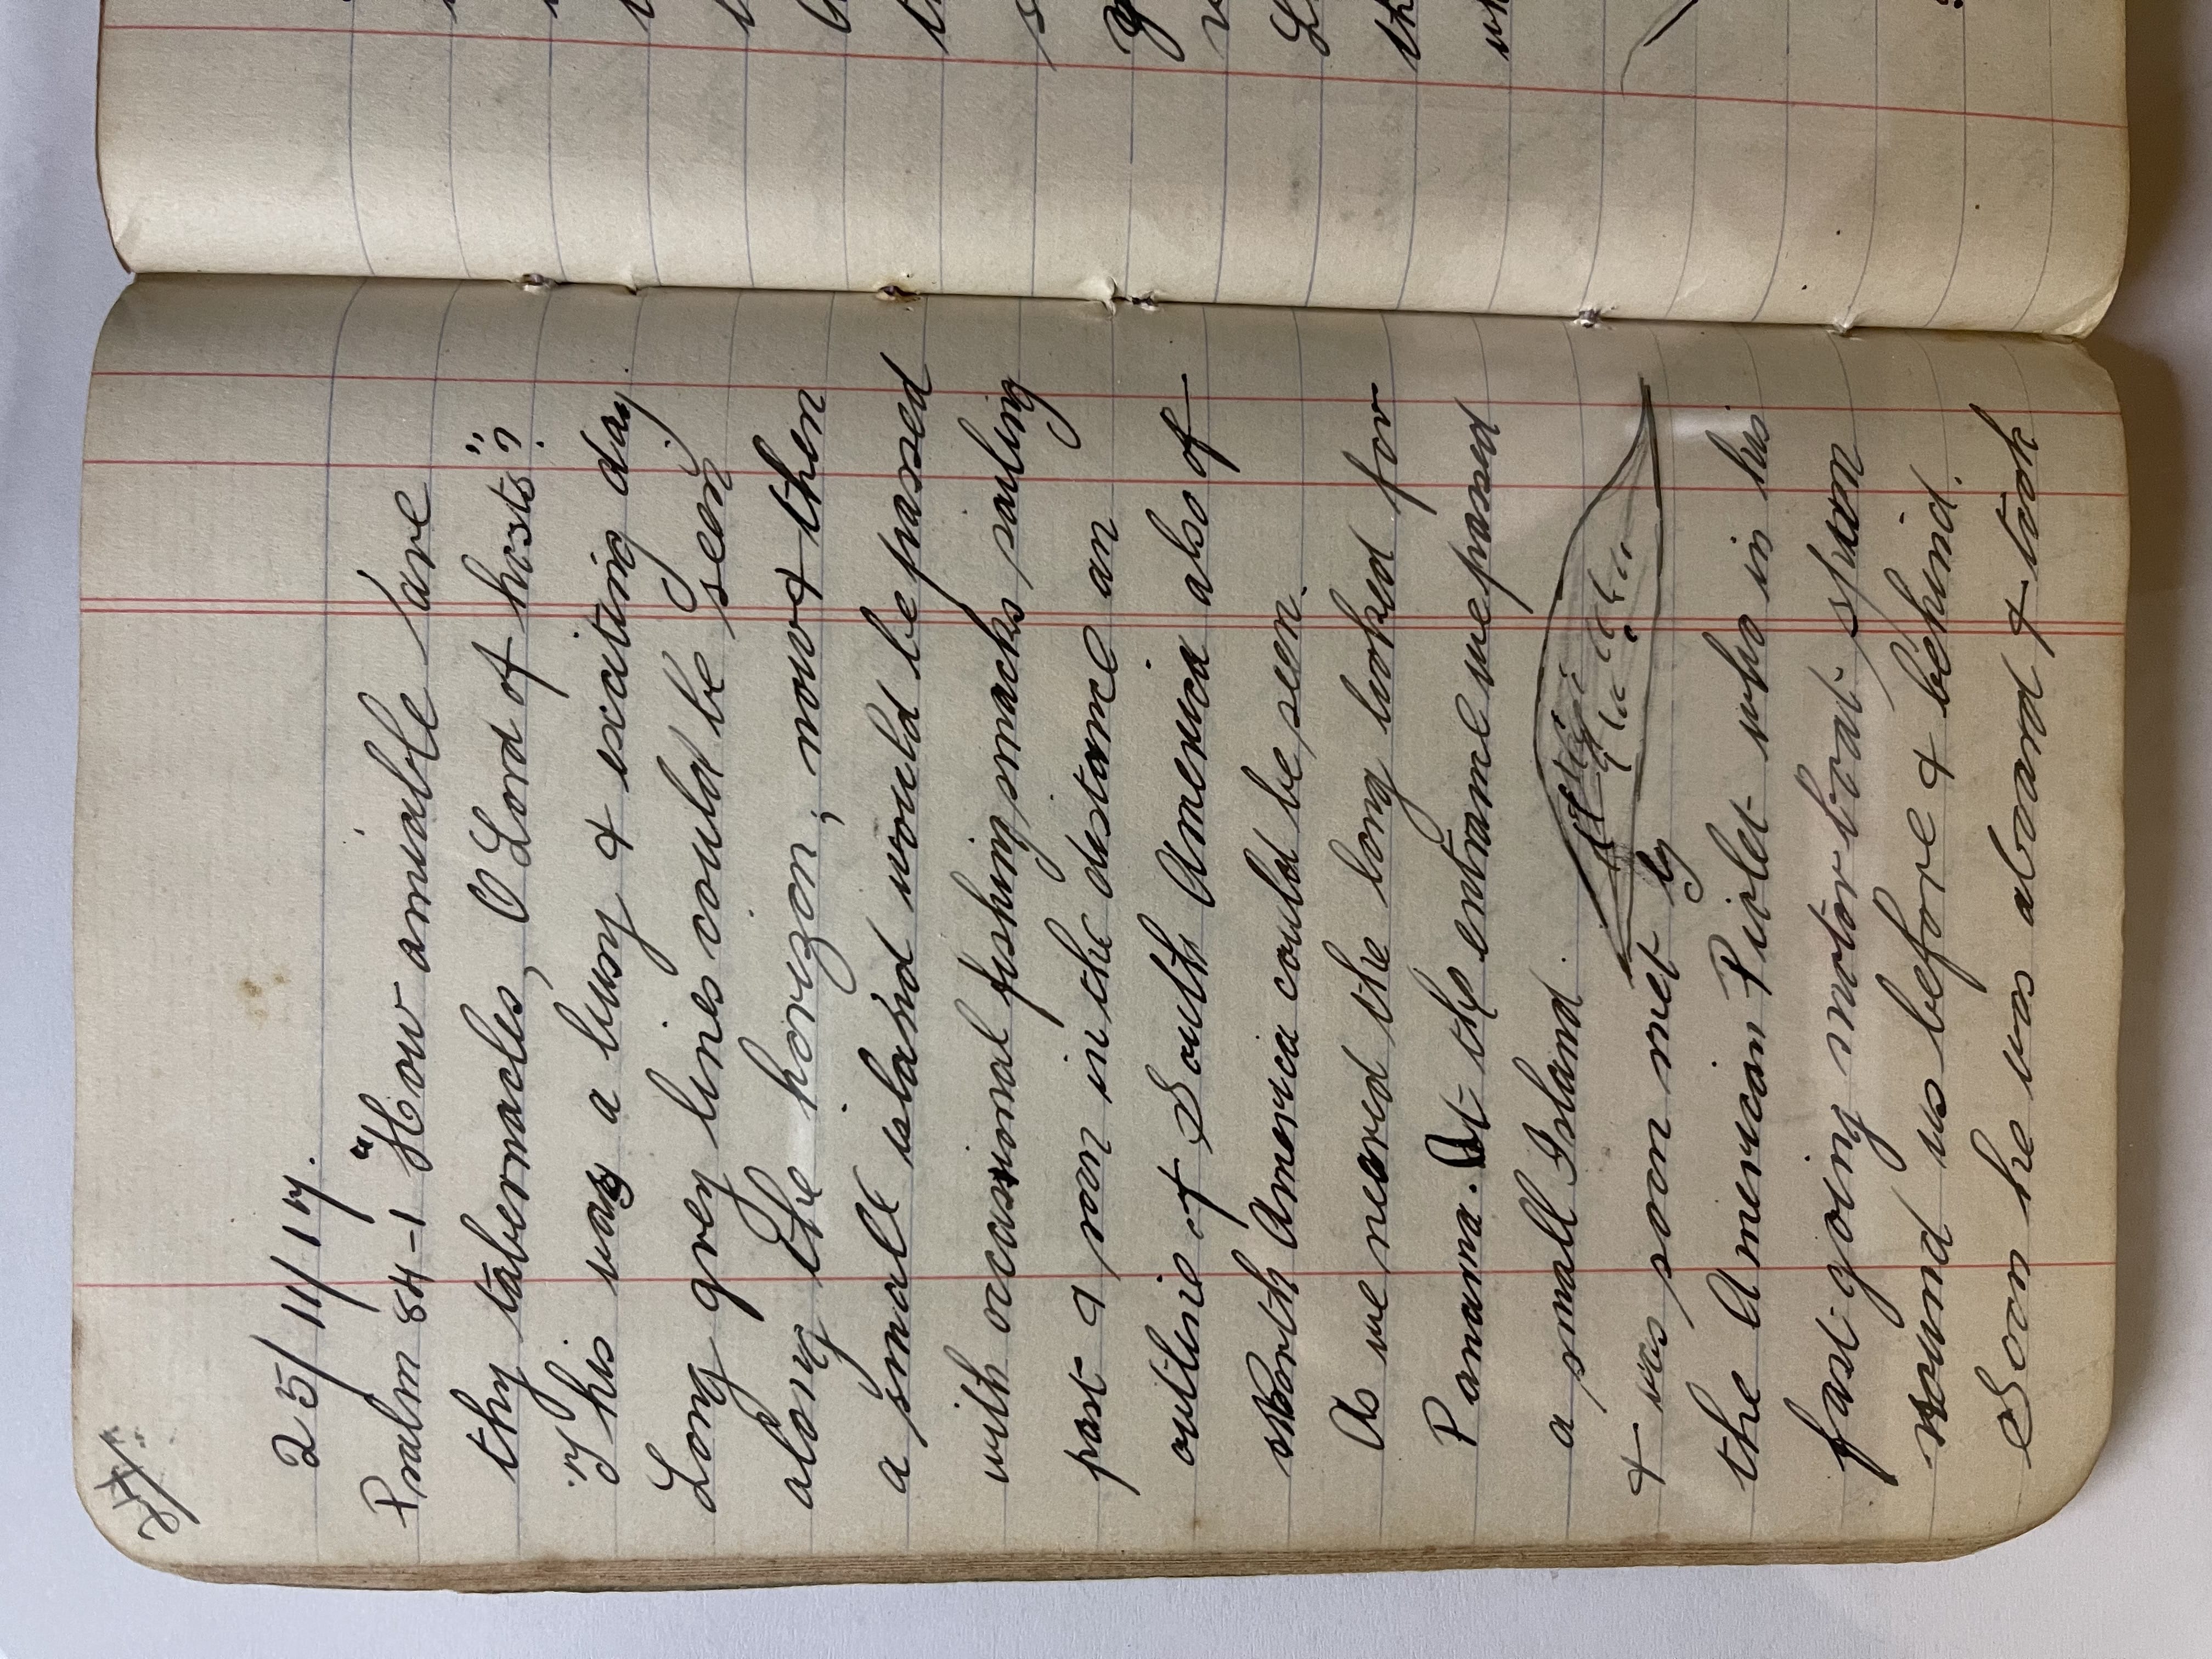 27/.
25/11/17.
Psalm 84-1 "How amiable are
thy tabernacles, O Lord of hosts"?
This was a busy & exciting day.
Long grey lines could be seen
along the horizon; now & then
a small island would be passed
with occasional fishing smacks sailing
past & soon in the distance an
outline of South America also of
North America could be seen.
As we neared the long looked for
Panama. At the entrance we passed
a small Island.
& was soon met by
the American Piolet who in his
fast going motor boat spun
round us before & behind.
Soon he was aboard & took